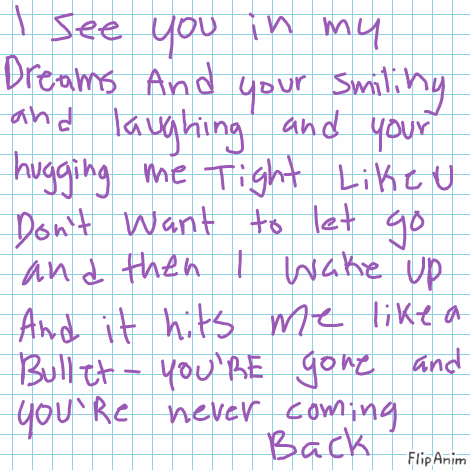 I see you in my
Dreams And your smiling
and laughing and your
hugging me Tight Like U
Don't want to let go
and then I wake up
And it hits me like a
Bullet- you'RE gone and
you'Re never coming
Back
FlipAnim